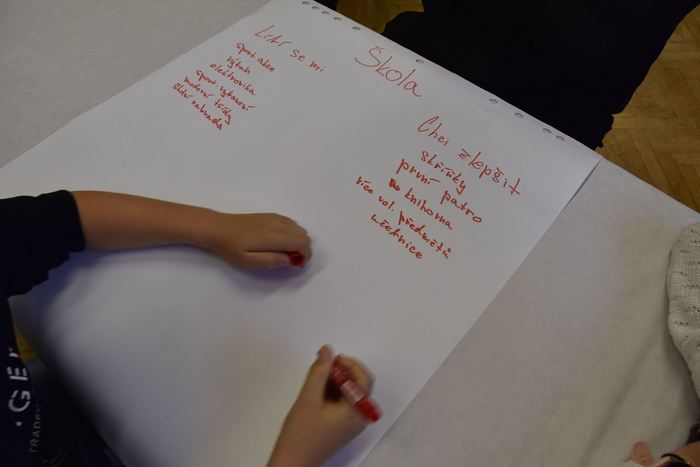 Škola
Líbí se mi
sport. akce
výtah
elektronika
sport. vybavení
moderní třídy
školní zahrada
Chci zlepšit
skříňky
první patro
knihovna
více vol. předmětů
učebnice
GE
TRADE